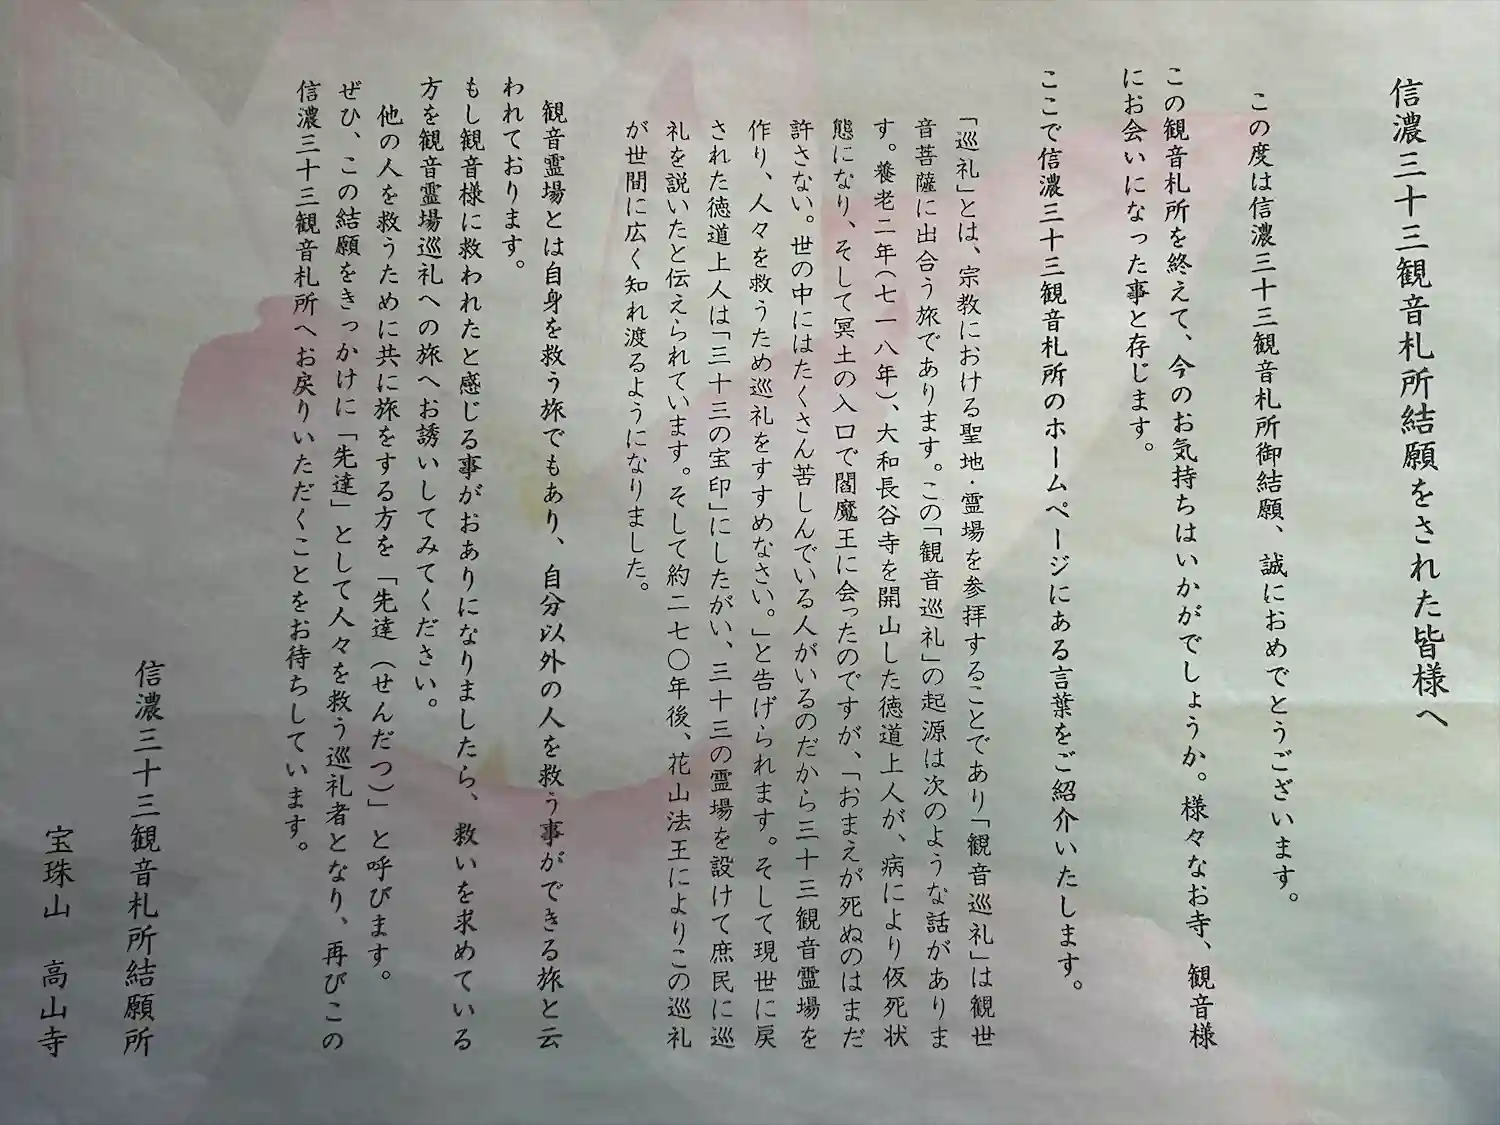 信濃三十三観音札所結願をされた皆様へ
この度は信濃三十三観音札所御結願、誠におめでとうございます。
この観音札所を終えて、今のお気持ちはいかがでしょうか。様々なお寺、観音様
にお会いになった事と存じます。
ここで信濃三十三観音札所のホームページにある言葉をご紹介いたします。
「巡礼」とは、宗教における聖地・霊場を参拝することであり「観音巡礼」は観世
音菩薩に出合う旅であります。この「観音巡礼」の起源は次のような話がありま
す。養老二年(七一八年)、大和長谷寺を開山した徳道上人が、病により仮死状
態になり、そして冥土の入口で閻魔王に会ったのですが、「おまえが死ぬのはまだ
許さない。世の中にはたくさん苦しんでいる人がいるのだから三十三観音霊場を
作り、人々を救うため巡礼をすすめなさい。」と告げられます。そして現世に戻
された徳道上人は「三十三の宝印」にしたがい、三十三の霊場を設けて庶民に巡
礼を説いたと伝えられています。そして約二七〇年後、花山法王によりこの巡礼
が世間に広く知れ渡るようになりました。
観音霊場とは自身を救う旅でもあり、自分以外の人を救う事ができる旅と云
われております。
もし観音様に救われたと感じる事がおありになりましたら、救いを求めている
方を観音霊場巡礼への旅へお誘いしてみてください。
他の人を救うために共に旅をする方を「先達(せんだつ)」と呼びます。
ぜひ、この結願をきっかけに「先達」として人々を救う巡礼者となり、再びこの
信濃三十三観音札所へお戻りいただくことをお待ちしています。
信濃三十三観音札所結願所
宝珠山 高山寺